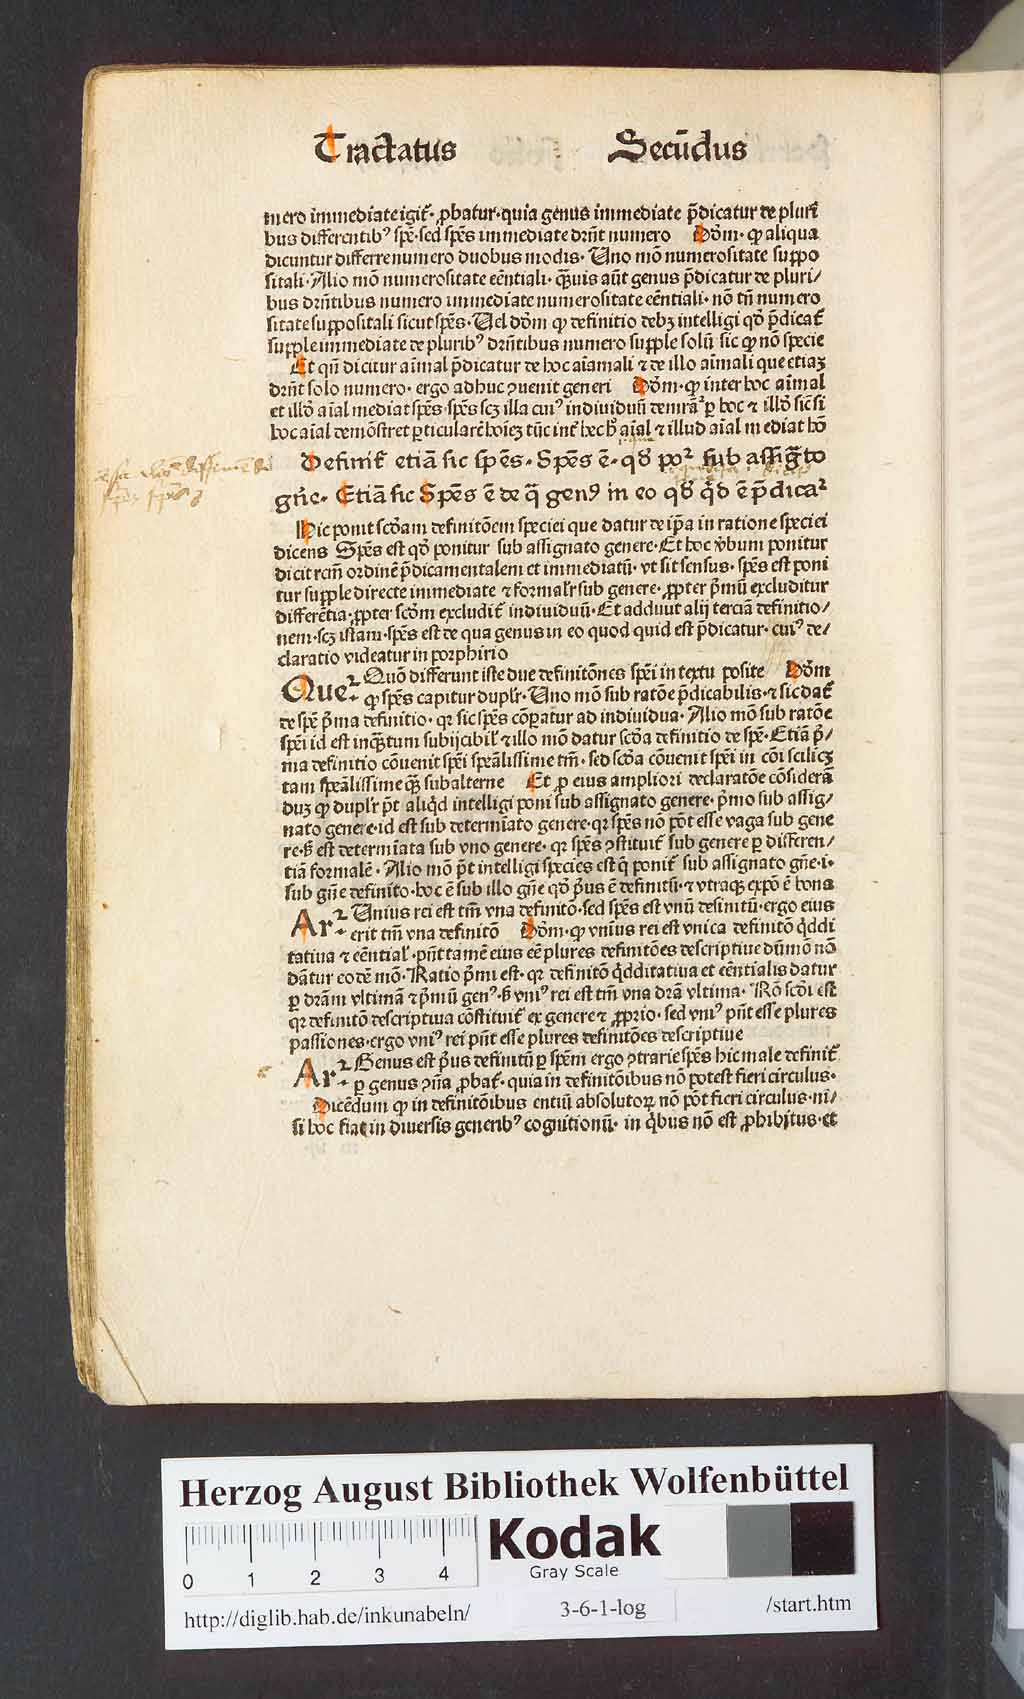 Tractatus Secūdus
mero immediate igit᷑· ꝓbatur· quia genus immediate p̄dicatur de pluri
bus differentibꝰ spē· sed spēs immediate drn̄t numero Dōm· ꝙ aliqua
dicuntur differre numero duobus modis· Uno mō numerositate suppo
sitali· Alio mō numerositate eēntiali· q̄uis aūt genus p̄dicatur de pluri/
bus drn̄tibus numero immediate numerositate eēntiali· nō tn̄ numero
sitate suppositali sicut spēs· Uel dōm ꝙ definitio debꝫ intelligi qđ p̄dicat᷑
supple immediate de pluribꝰ drn̄tibus numero supple solū sic ꝙ nō specie
Et qn̄ dicitur aīmal p̄dicatur de hoc aīamali ⁊ de illo aīmali que etiaꝫ
drn̄t solo numero· ergo adhuc ↄuenit generi Dōm· ꝙ inter hoc aīmal
et illđ aīal mediat spēs· spēs scꝫ illa cuiꝰ indiuiduū demrāꝛ ꝑ hoc ⁊ illđ sic si
hoc aīal demōstret ꝑticularē hoīeꝫ tūc int᷑ hec hꝰ aīal ⁊ illud aīal mediat hō
Definit᷑ etiā sic spēs· Spēs ē· qđ poꝛ sub assigāto
gn̄e· Etiā sic Spēs ē de q̄ genꝰ in eo qđ qͥd ē p̄dicaꝛ
Hic ponit scđam definitōem speciei que datur de ip̄a in ratione speciei
dicens Spēs est qđ ponitur sub assignato genere· Et hoc v̄bum ponitur
dicit rcm̄ ordinē p̄dicamentalem et immediatū· vt sit sensus· spēs est poni
tur supple directe immediate ⁊ formalr̄ sub genere· ꝓpter p̄mū excluditur
differētia· ꝓpter scđm excludit᷑ indiuiduū· Et adduut alij terciā definitio/
nem· scꝫ istam· spēs est de qua genus in eo quod quid est p̄dicatur· cuiꝰ de/
claratio videatur in porphirio
Queꝛ· Quō differunt iste due definitōnes spēi in textu posite Dōm
ꝙ spēs capitur duplr̄· Uno mō sub ratōe p̄dicabilis· ⁊ sic dat᷑
de spē p̄ma definitio· qꝛ sic spēs cōꝑatur ad indiuidua· Alio mō sub ratōe
spēi id est inq̄tum subijcibil̄ ⁊ illo mō datur scđa definitio de spē· Etiā p̄/
ma definitio cōuenit spēi speālissime tm̄· sed scđa cōuenit spēi in cōi scilicꝫ
tam speālissime q̄ꝫ subalterne Et ꝓ eius ampliori declaratōe cōsiderā
duꝫ ꝙ duplr̄ pt̄ aliqͥd intelligi poni sub assignato genere· p̄mo sub assig/
nato genere· id est sub determīato genere· qꝛ spēs nō pōt esse vaga sub gene
re· ꝫ est determīata sub vno genere· qꝛ spēs ↄstituit᷑ sub genere ꝑ differen/
tiā formalē· Alio mō pt̄ intelligi species est q̄ ponit᷑ sub assignato gn̄e· i·
sub gn̄e definito· hoc ē sub illo gn̄e qđ p̄us ē definitū· ⁊ vtraqꝫ expō ē bona
Arꝛ· Unius rei est tm̄ vna definitō· sed spēs est vnū definitū· ergo eius
erit tm̄ vna definitō Dōm· ꝙ vnius rei est vnica definitō qͥdditatiua
tatiua ⁊ eēntial̄· pn̄t tamē eius eē plures definitōes descriptiue dūmō nō
dātur eodē mō· Ratio p̄mi est· qꝛ definitō qͥdditatiua et eēntialis datur
ꝑ drām vltimā ⁊ p̄mū genꝰ· ꝫ vniꝰ rei est tm̄ vna drā vltima· Rō scđi est
qꝛ definitō descriptiua cōstituit᷑ ex genere ⁊ ꝓprio· sed vniꝰ pn̄t esse plures
passiones· ergo vniꝰ rei pn̄t esse plures definitōes descriptiue
Arꝛ· Genus est p̄us definitū ꝑ spēm ergo ↄtrarie spēs hic male definit᷑
ꝑ genus ↄn̄a ꝓbat᷑· quia in definitōibus nō potest fieri circulus·
Dicēdum ꝙ in definitōibus entiū absolutoꝝ nō pōt fieri circulus· ni/
si hoc fiat in diuersis generibꝰ cognitionū· in qͥbus nō est ꝓhibitus· et
Herzog August Bibliothek Wolfenbüttel
Kodak
Gray Scale
0 1 2 3 4
http://diglib.hab.de/inkunabeln/ 3-6-1-log /start.htm